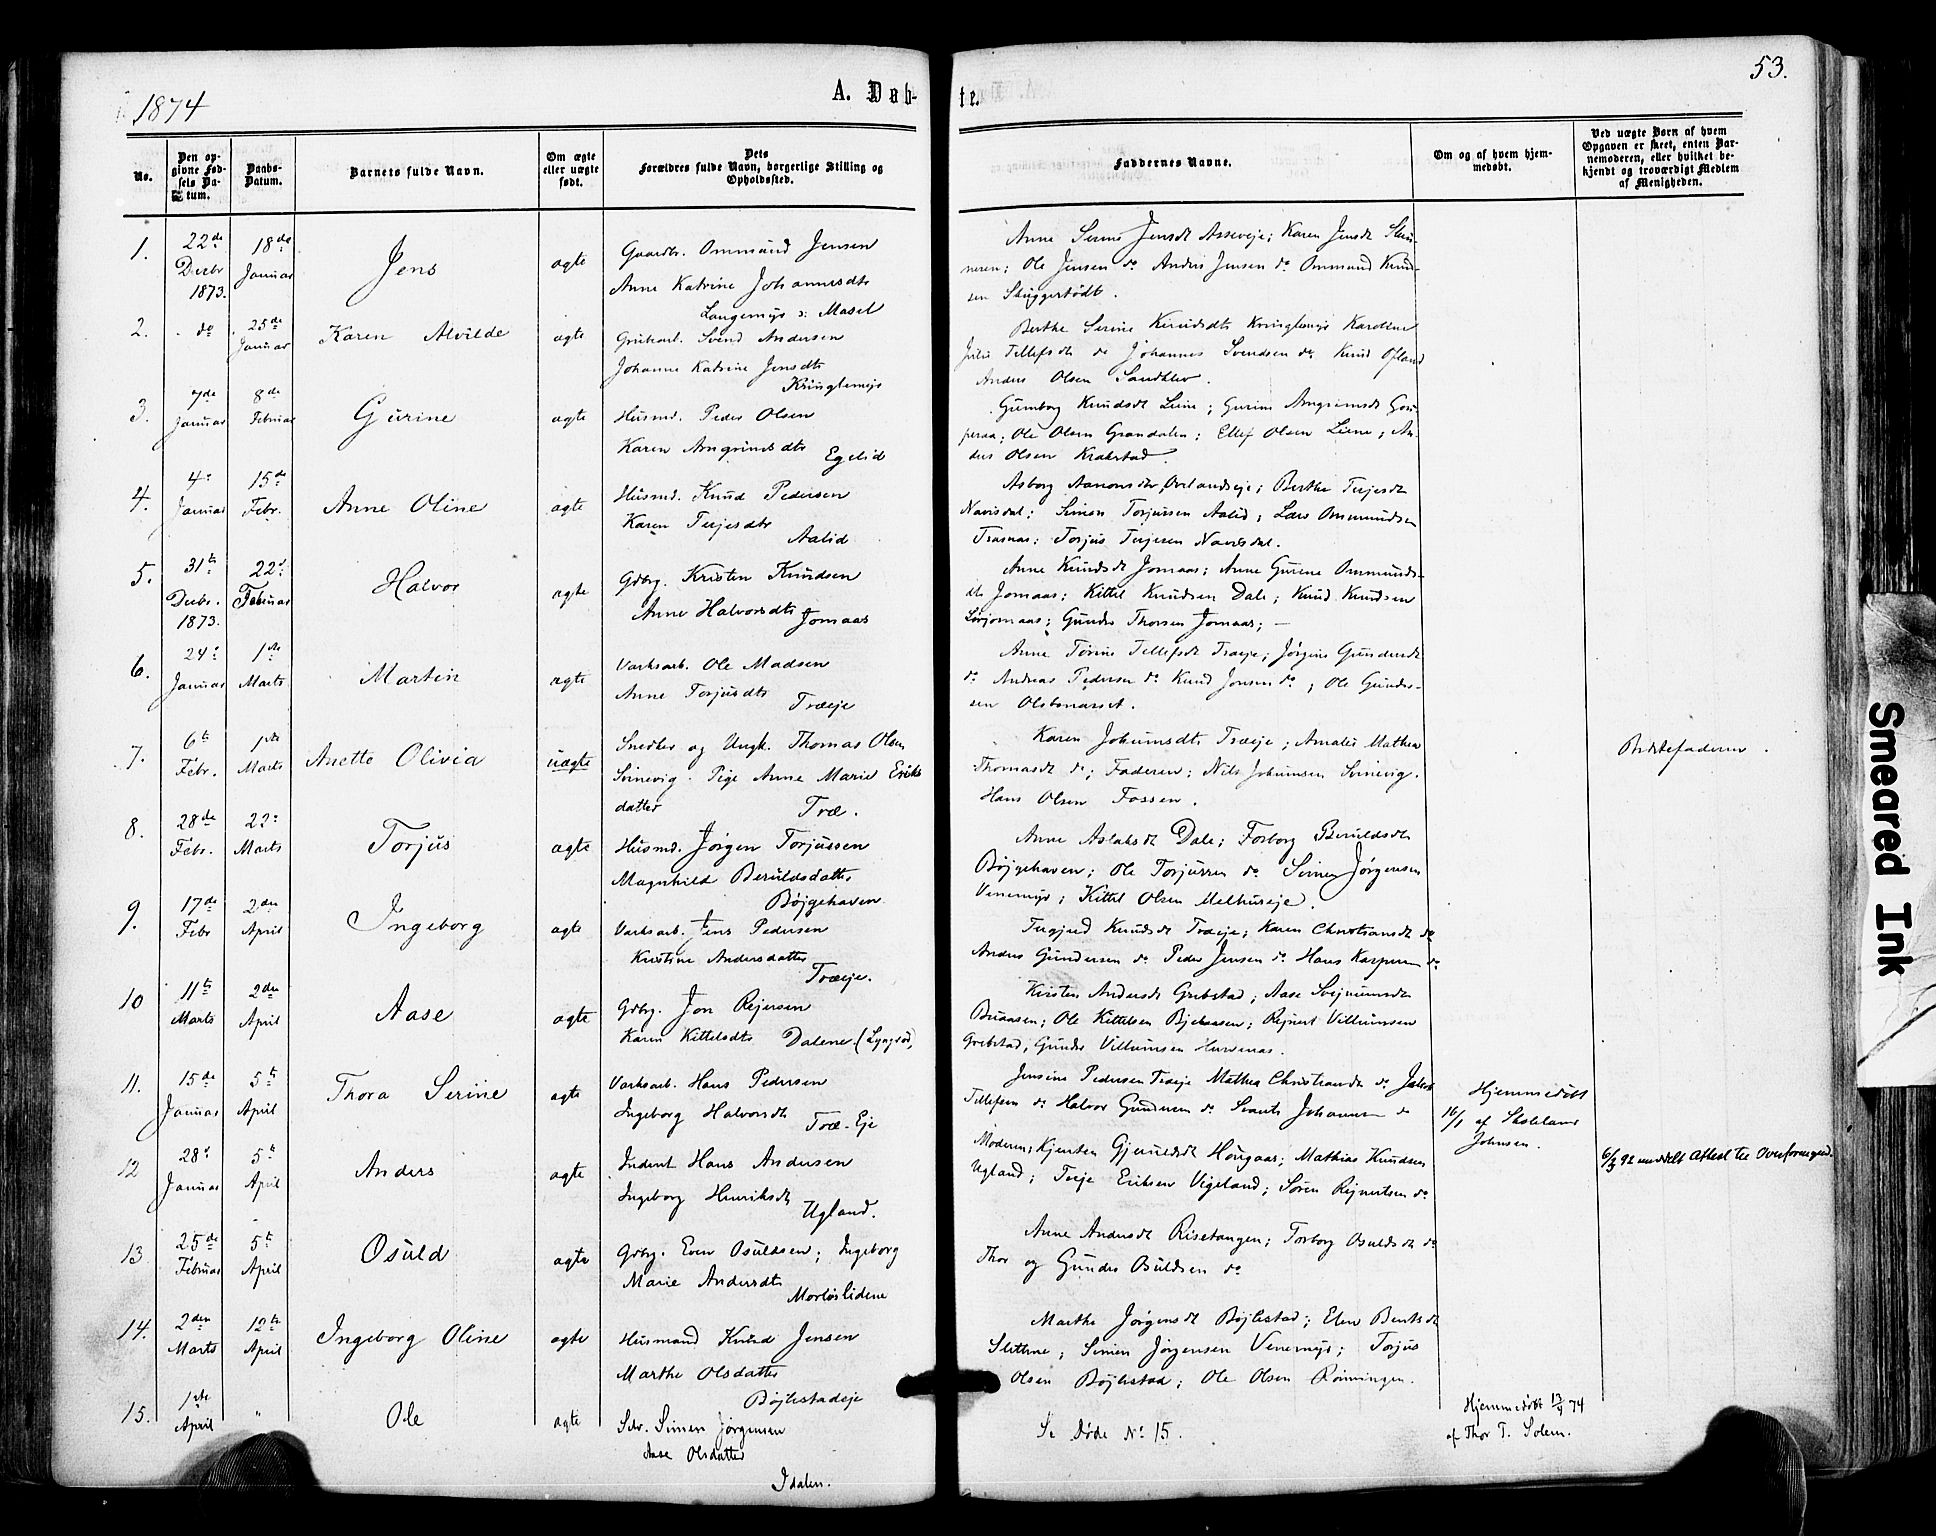 1874
A. Døb-
te.
53.
No.
Den op-
givne Fød-
sels Da-
tum.
Daabs-
Datum.
Barnets fulde Navn.
Om ægte
eller uægte
født.
Dets
Forældres fulde Navn, borgerlige Stilling og
Opholdssted.
Faddernes Navne.
Om og af hvem hjem-
medøbt.
Ved uægte Børn af hvem
Opgaven er skeet, enten Bar-
nemoderen, eller hvilket be-
kjendt og troværdigt Medlem
af Menigheden.
1.
22de
Decbr
1873.
18de
Januar
Jens
ægte
Gaardbr. Ommund Jensen
Anne Katrine Johannesdtr
Langemyr
Anne Serine Jensdt Asseveje; Karen Jensdt
Ole Jensen do Anders Jensen do Ommund Knud-
sen
2.
do
25de
Januar
Karen Alvilde
ægte
Grubearb. Svend Andersen
Johanne Katrine Jensdtr
Kringlemyr
Berthe Serine Knudsdtr Kringlemyr Karoline
Tellefsdt do Johannes Svendsen do Knud
Anders Olsen Sandklev.
3.
7de
Januar
8de
Februar
Gurine
ægte
Husmd. Peder Olsen
Karen Arngrimsdtr
Egelid
Gumborg Knudsdt Liene; Gurine Arngrimsdt
Ole Olsen Grandalen; Ellef Olsen Liene; An-
ders Olsen Krabstad.
4.
4.
Januar
15de
Febr.
Anne Oline
ægte
Husmd. Knud Pedersen
Karen Terjesdtr
Aalid
Asborg Aanonsdtr, Berthe Terjesdt
Navisdal; Simon Torjussen Aalid; Lars Ommundsen
Torjus Terjesen Navisdal.
5.
31te
Decbr.
1873.
22d
Februar
Halvor
ægte
Gdbrg. Kristen Knudsen
Anne Halvorsdtr
Jomaas
Anne Knudsdt Jomaas; Anne Gurine Ommunds-
dtr Jomaas; Kittel Knudsen Dale; Knud Knudsen
Gunder Thorsen Jomaas; —
6.
24d
Januar
1ste
Marts
Martin
ægte
Værksarb. Ole Madsen
Anne Torjusdtr
Træeje
Anne Torine Tellefsdt Træeje; Jørgine Gundersdt
do Andreas Pedersen do Knud Jensen do; Ole Gunders-
sen
7.
6te
Febr.
1ste
Marts
Anette Olivia
uægte
Snedker og Ungk. Thomas Olsen
Pige Anne Marie Eriks
datter
Træ.
Karen Johannsdtr Træeje; Amalie Mathea
Thomasdt do; Faderen; Nils Johannsen
Hans Olsen Fossen.
Bedstefaderen.
8.
28de
Febr.
22d
Marts
Torjus
ægte
Husmd. Jørgen Torjussen
Magnhild Beruldsdatter
Bøjgehaven
Anne Aslaksdt Dale; Torborg Beruldsdt
Bøjgehaven; Ole Torjussen do Simen Jørgensen
Venemyr; Kittel Olsen Melhuseje.
9.
17de
Febr
2den
April
Ingeborg
ægte
Værksarb. Jens Pedersen
Kristine Andersdatter
Træeje.
Knudsdt Træeje; Karen Christiansdt do
Anders Gundersen do Peder Jensen do Hans Kaspersen do
10
11te
Marts
2den
April
Aase
ægte
Gdbrg. Jon Rejersen
Karen Kittelsdtr Dalene
Kirsten Andersdt Grebstad; Aase
Ole Kittelsen Rejnert Villumsen
Grebstad; Gunder Villumsen
11.
15de
Januar
5te
April
Thora Serine
ægte
Værksarb. Hans Pedersen
Ingeborg Halvorsdt
Træ-Eje
Jensine Pedersen Træeje Mathea Christiansdt do Jakob
Tellefsen do Halvor Gundersen do Johannesen do
Hjemmedøbt
16/1 af
Johnsen.
12
28d
Januar
5te
April
Anders
ægte
Inderst Hans Andersen
Ingeborg Henriksdt
Ugland.
Moderen; Kjersten Hougaas; Mathias Knudsen
Ugland; Terje Eriksen Vigeland; Søren Rejnertsen do
6/3 92 meddelt Attest til
13
25de
Februar
5te
April
Osuld
ægte
Gdbrg. Even Osuldsen; Ingeborg
Marie Andersdtr
Morløslidene
Anne Andersdt Risetangen; Torborg Osuldsdt do
Thor og Gunder Osuldsen do
14.
2den
Marts
12te
April
Ingeborg Oline
ægte
Husmand Knud Jensen
Marthe Olsdatter
Bøjlestadeje
Marthe Jørgensdt Bøjlestad; Elen Berthsdt
Slettene; Simen Jørgensen Venemyr; Torjus
Olsen Bøjlestad; Ole Olsen Rønningen.
15.
1ste
April
"
Ole
ægte
Selv. Simen Jørgensen
Aase Olsdatter
Idalen.
Se Døde No 15.
Hjemmedøbt 13/4 74
af Thor T. Solem.
Smeared Ink